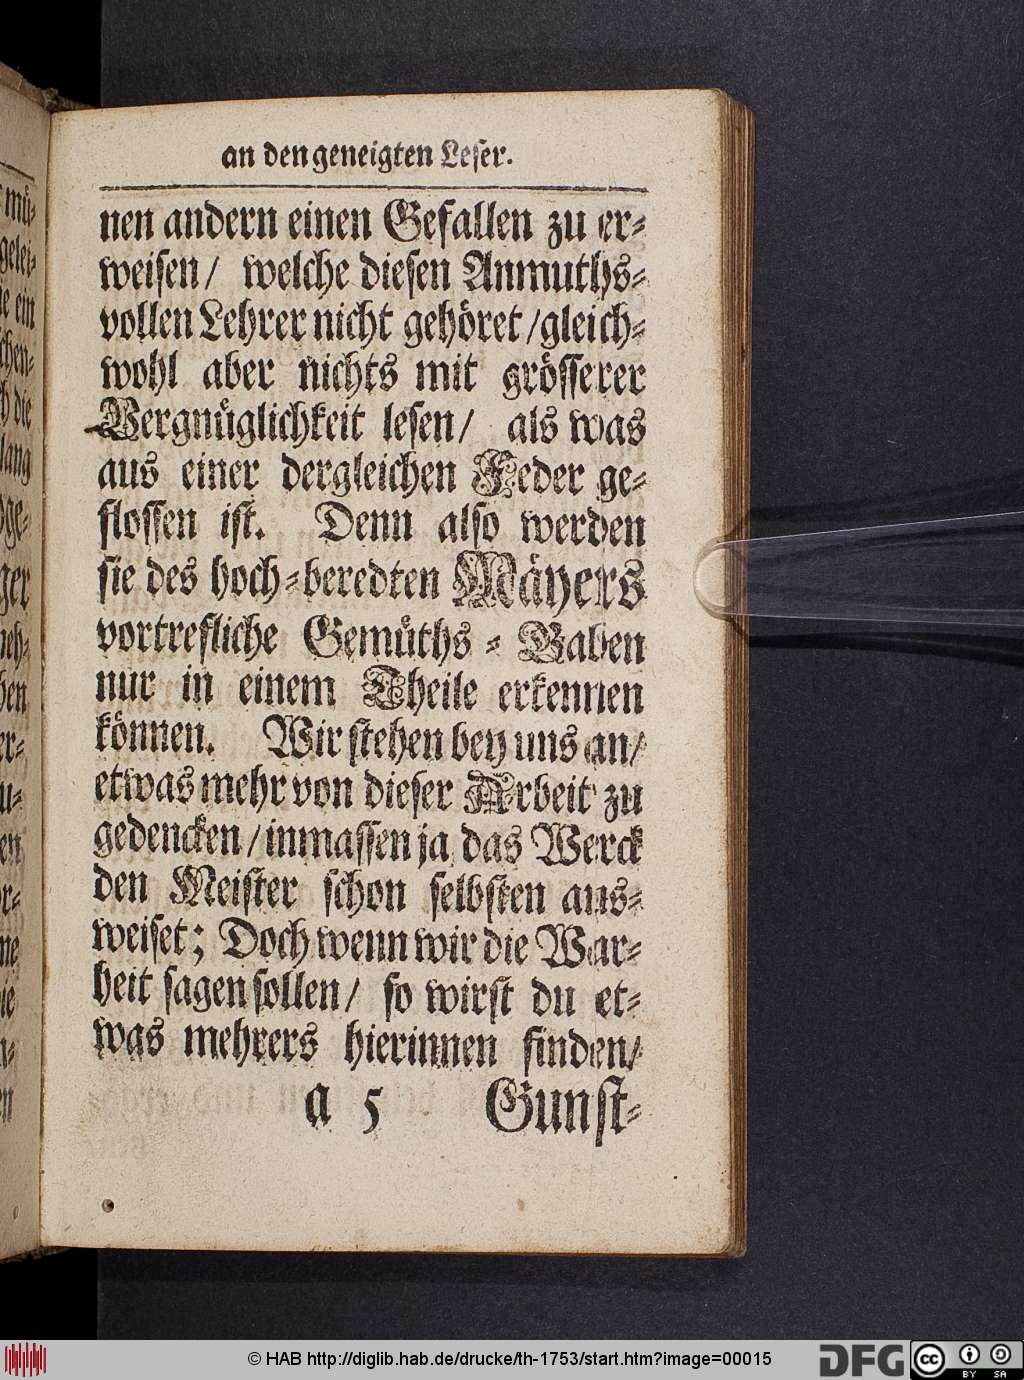 an den geneigten Leser.
nen andern einen Gefallen zu er-
weisen/ welche diesen Anmuths-
vollen Lehrer nicht gehöret/gleich-
wohl aber nichts mit grösserer
Vergnüglichkeit lesen/ als was
aus einer dergleichen Feder ge-
flossen ist. Denn also werden
sie des hoch-beredten Mäyers
vortrefliche Gemüths-Gaben
nur in einem Theile erkennen
können. Wir stehen bey uns an/
etwas mehr von dieser Arbeit zu
gedencken/inmassen ja das Werck
den Meister schon selbsten aus-
weiset; Doch wenn wir die War-
heit sagen sollen/ so wirst du et-
was mehrers hierinnen finden/
a 5 Gunst-
© HAB http://diglib.hab.de/drucke/th-1753/start.htm?image=00015
DFG
cc BY SA